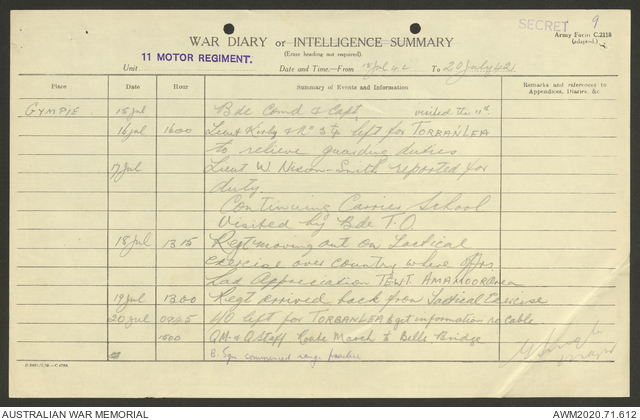 SECRET 9
WAR DIARY or INTELLIGENCE SUMMARY
Army Form C.2118
(Erase heading not required).
(adapted.)
11 MOTOR REGIMENT.
Unit
Date and Time—From Jul 42 To 20 July 42
Place Date Hour Summary of Events and Information Remarks and references to Appendices, Diaries, &c
GYMPIE. 15 Jul Bde Comd & Capt visited the 11th.
16 Jul 1600 Lieut Kirby & left for TORBANLEA
to relieve guarding duties
17 Jul Lieut W. Nixon-Smith reported for
duty
Continuing Carrier School
Visited by Bde T.O.
18 Jul 1315 Regt moving out on Tactical
exercise over country where offrs
had Appreciation TEWT. AMAMOOR Area
19 Jul 1300 Regt arrived back from Tactical Exercise
20 Jul 0945 left for TORBANLEA to get information re Cable
1500 QM & Q Staff Route March to Bells Bridge
B. Sqn commenced range practice
Major
AUSTRALIAN WAR MEMORIAL
AWM2020.71.612